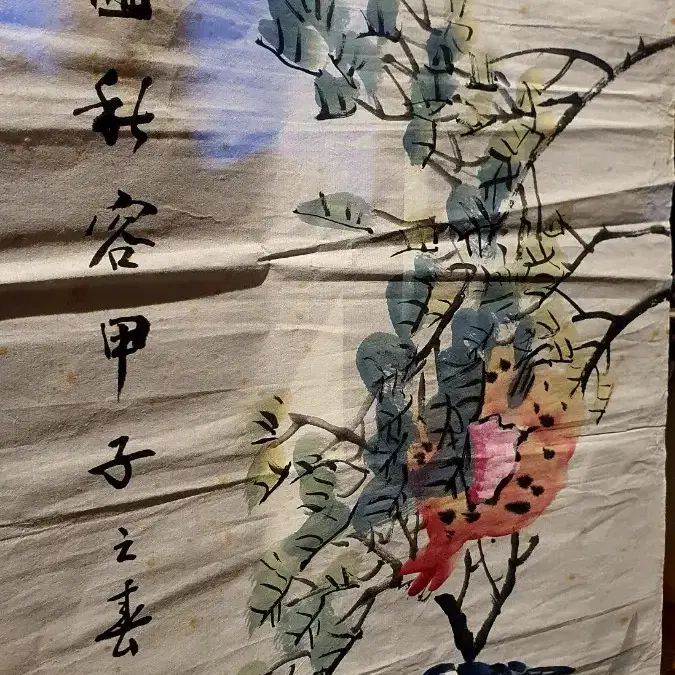 秋容甲子之春